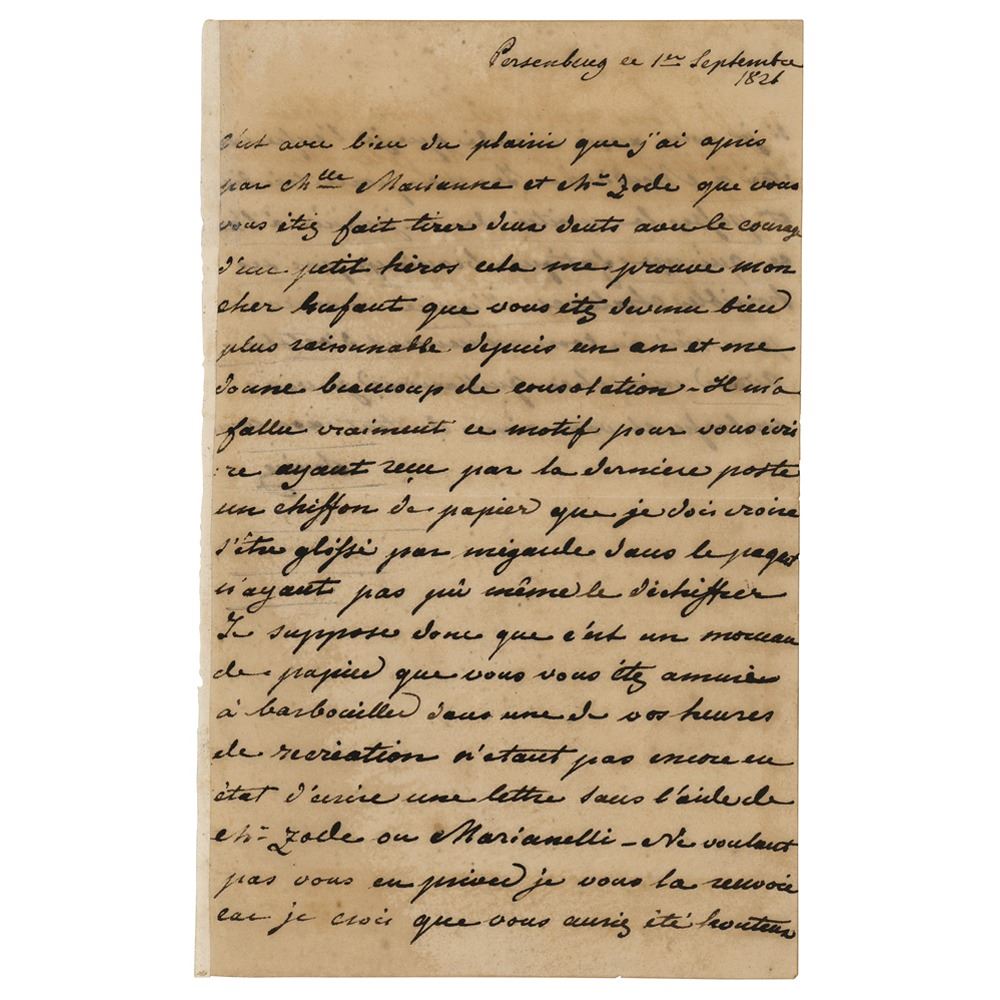 Persenbeug ce 1er Septembre
1826
C'est avec bien du plaisir que j'ai apris
par Mlle Marianne et Mr Zode que vous
vous étiez fait tirer deux dents avec le courage
d'un petit héros cela me prouve mon
cher Enfant que vous étez devenu bien
plus raisonnable depuis un an et me
donne beaucoup de consolation - Il m'a
fallu vraiment ce motif pour vous écri
re ayant reçu par la derniere poste
un chiffon de papier que je dois croire
s'être glissé par mégarde dans le paquet
n'ayant pas pû même le déchiffrer
Je suppose donc que c'est un morceau
de papier que vous vous étez amusé
à barbouiller dans une de vos heures
de recréation n'étant pas encore en
état d'écrire une lettre sans l'aide de
Mr Zode ou Marianelli - Ne voulant
pas vous en priver je vous la renvoie
car je crois que vous auriez été honteux